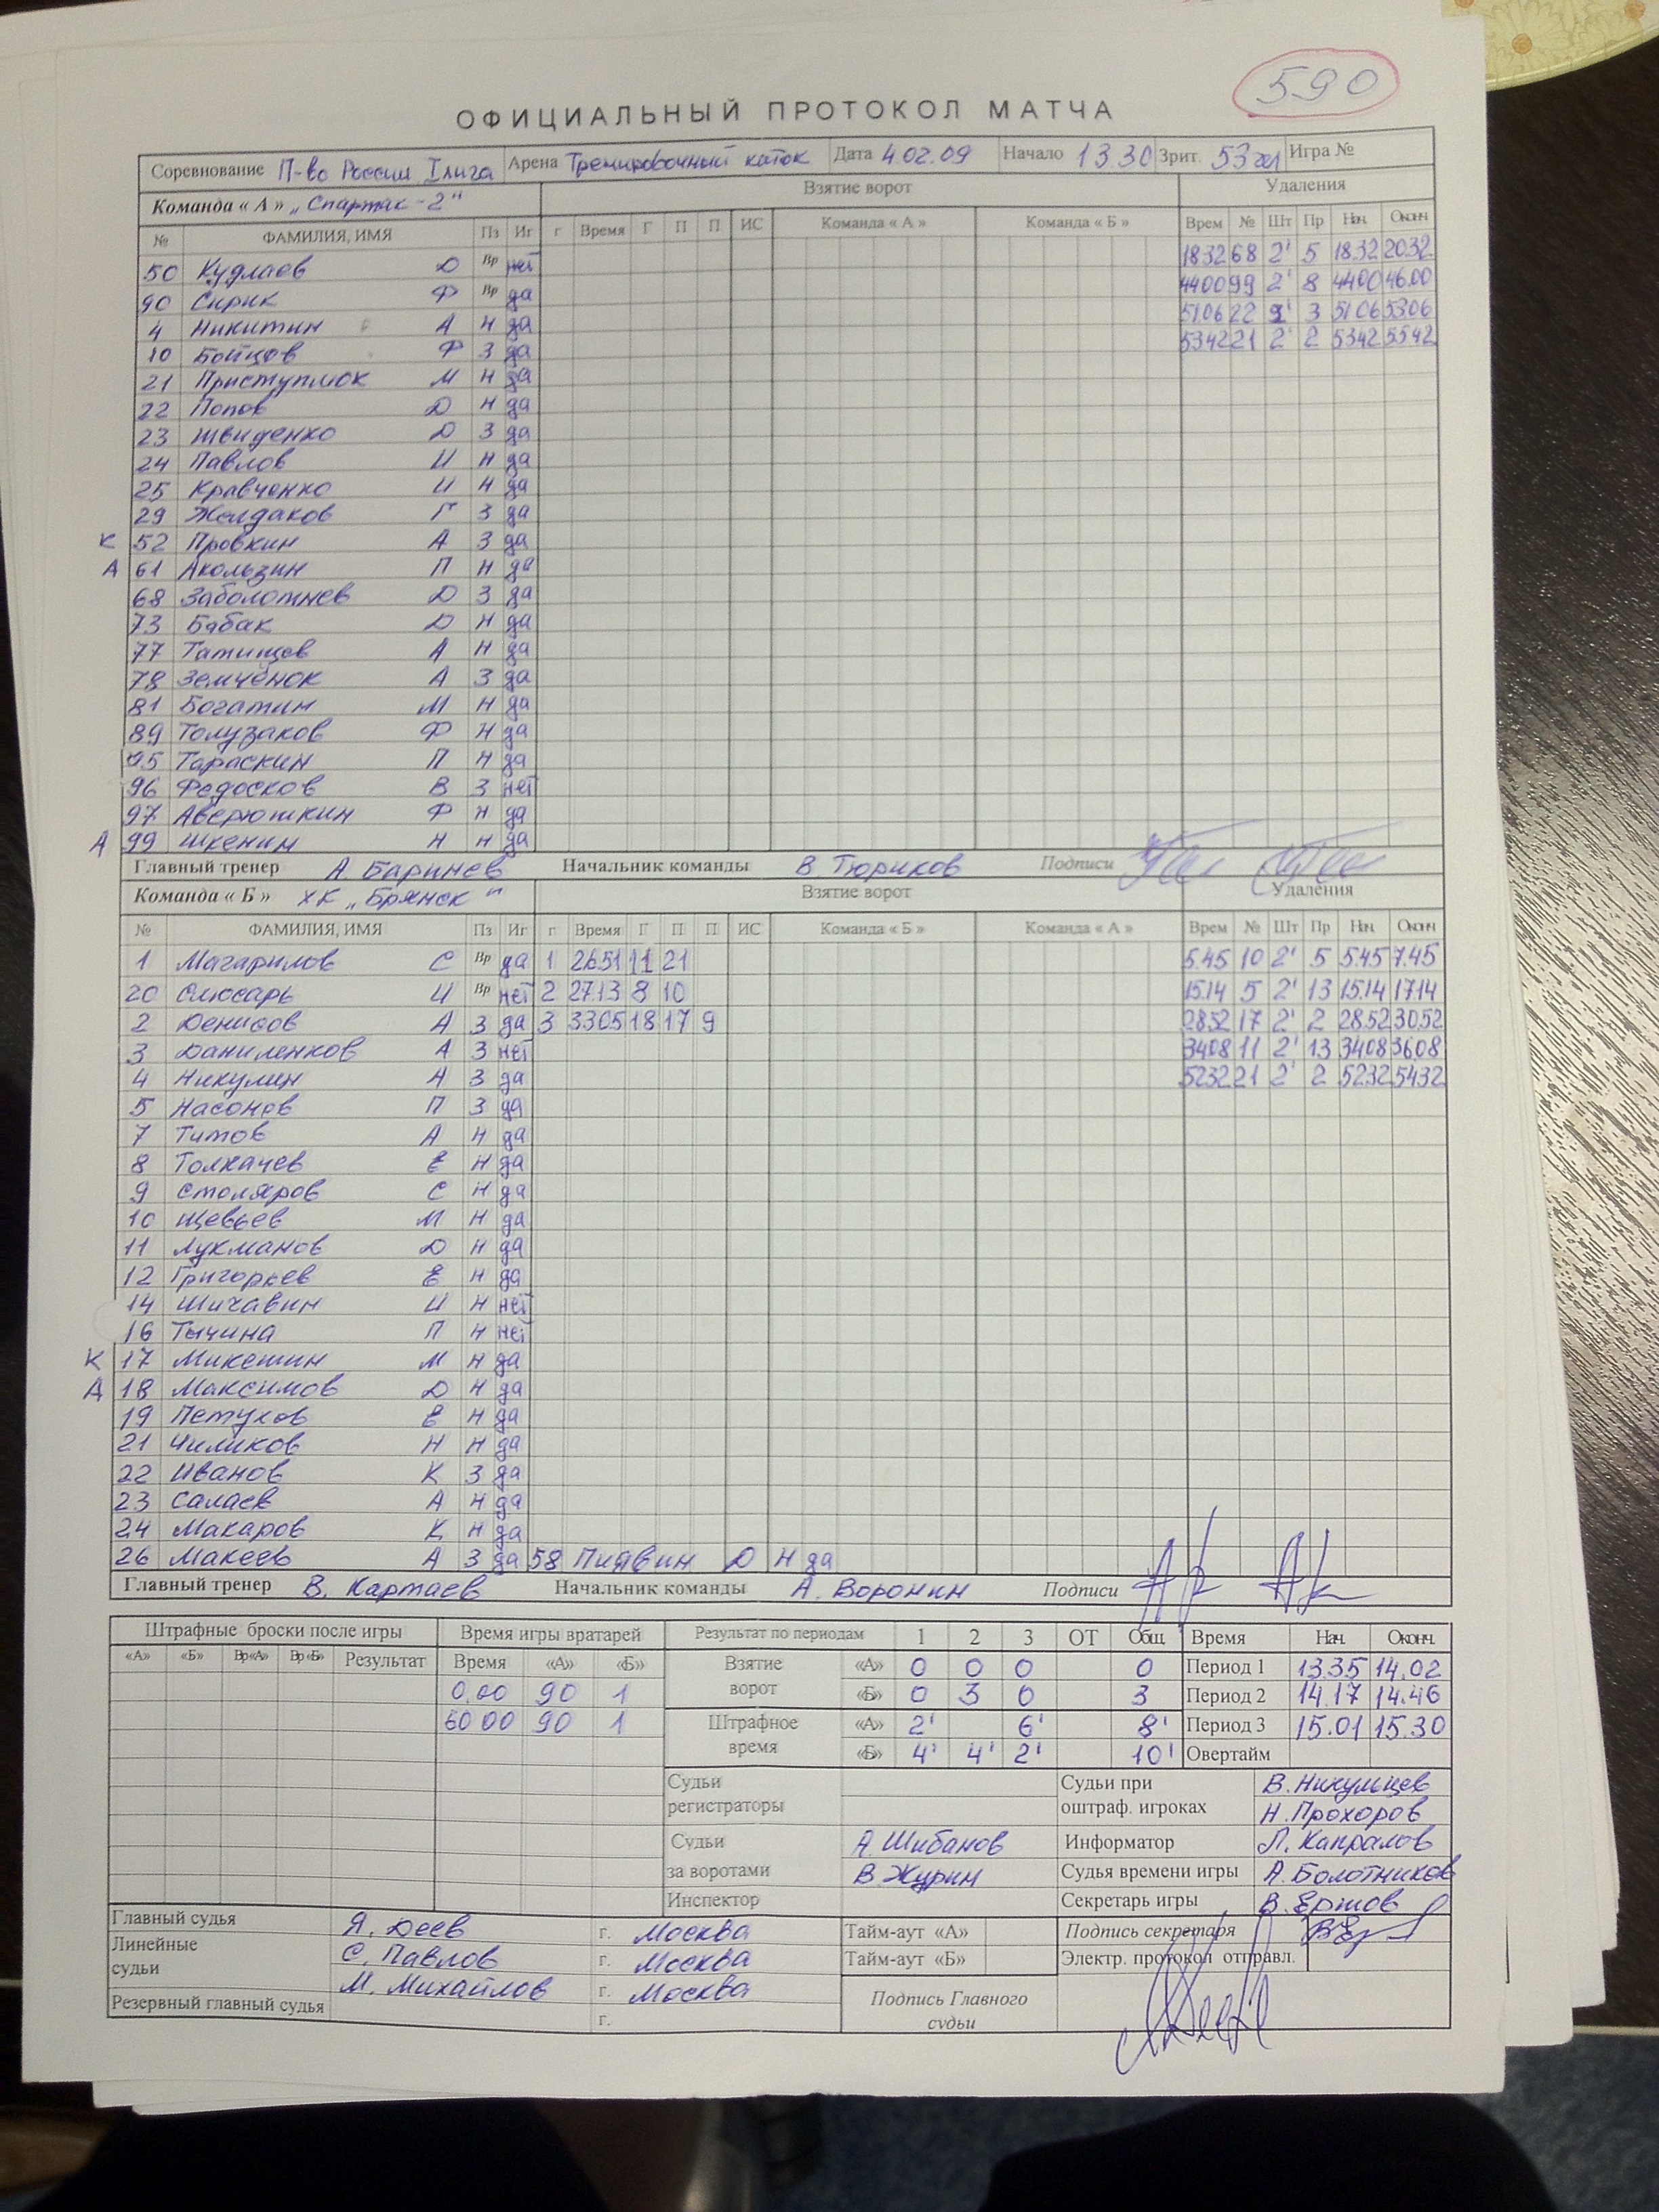 590
ОФИЦИАЛЬНЫЙ ПРОТОКОЛ МАТЧА
Соревнование П-во России I лига Арена Тренировочный каток Дата 4.02.09 Начало 13 30 Зрит. 53 чел Игра №
Команда « А » „Спартак-2" Взятие ворот Удаления
№ ФАМИЛИЯ, ИМЯ Пз Иг г Время Г П П ИС Команда « А » Команда « Б » Врем № Шт Пр Нач. Оконч
50 Кудлаев Д Вр нет 18 32 68 2' 5 18.32 20.32
90 Сирик Ф Вр да 44 00 99 2' 8 44 00 46.00
4 Никитин А Н да 51.06 22 2' 3 51 06 53 06
10 Бойцов Ф З да 53 42 21 2' 2 53 42 55 42
21 Приступлюк М Н да
22 Попов Д Н да
23 Швиденко Д З да
24 Павлов И Н да
25 Кравченко И Н да
29 Желдаков Г З да
К 52 Провкин А З да
А 61 Акользин П Н да
68 Заболотнев Д З да
73 Бабак Д Н да
77 Татищев А Н да
78 Земчёнок А З да
81 Богатин М Н да
89 Толузаков Ф Н да
95 Тараскин П Н да
96 Федосков В З нет
97 Аверюшкин Ф Н да
А 99 Шкенин Н Н да
Главный тренер А Баринев Начальник команды В Тюриков Подписи
Команда « Б » ХК „Брянск" Взятие ворот Удаления
№ ФАМИЛИЯ, ИМЯ Пз Иг г Время Г П П ИС Команда « Б » Команда « А » Врем № Шт Пр Нач. Оконч
1 Магарилов С Вр да 1 26.51 11 21 5.45 10 2' 5 5.45 7.45
20 Слюсарь И Вр нет 2 27.13 8 10 15.14 5 2' 13 15.14 17.14
2 Денисов А З да 3 33.05 18 17 9 28.52 17 2' 2 28.52 30.52
3 Даниленков А З нет 34 08 11 2' 13 34 08 36 08
4 Никулин А З да 52 32 21 2' 2 52 32 54 32
5 Насонов П З да
7 Титов А Н да
8 Толкачев Е Н да
9 Столяров С Н да
10 Щевьев М Н да
11 Лукманов Д Н да
12 Григорьев Е Н да
14 Шичавин И Н нет
16 Тычина П Н нет
К 17 Микешин М Н да
А 18 Максимов Д Н да
19 Петухов Е Н да
21 Чиликов Н Н да
22 Иванов К З да
23 Салаев А Н да
24 Макаров К Н да
26 Макеев А З да 58 Пиявин Д Н да
Главный тренер В. Картаев Начальник команды А. Воронин Подписи
Штрафные броски после игры Время игры вратарей Результат по периодам 1 2 3 ОТ Общ. Время Нач. Оконч.
«А» «Б» Вр«А» Вр«Б» Результат Время «А» «Б» Взятие ворот «А» 0 0 0 0 Период 1 13.35 14.02
0.00 90 1 «Б» 0 3 0 3 Период 2 14.17 14.46
60 00 90 1 Штрафное время «А» 2' 6' 8' Период 3 15.01 15.30
«Б» 4' 4' 2' 10' Овертайм
Судьи регистраторы Судьи при оштраф. игроках В. Никульцев
Н. Прохоров
Судьи А. Шибанов Информатор Л. Капралов
за воротами В. Журин Судья времени игры А. Болотников
Инспектор Секретарь игры В. Ершов
Главный судья Я. Деев г. Москва Тайм-аут «А» Подпись секретаря
Линейные судьи С. Павлов г. Москва Тайм-аут «Б» Электр. протокол отправл.
М. Михайлов г. Москва Подпись Главного судьи
Резервный главный судья г.